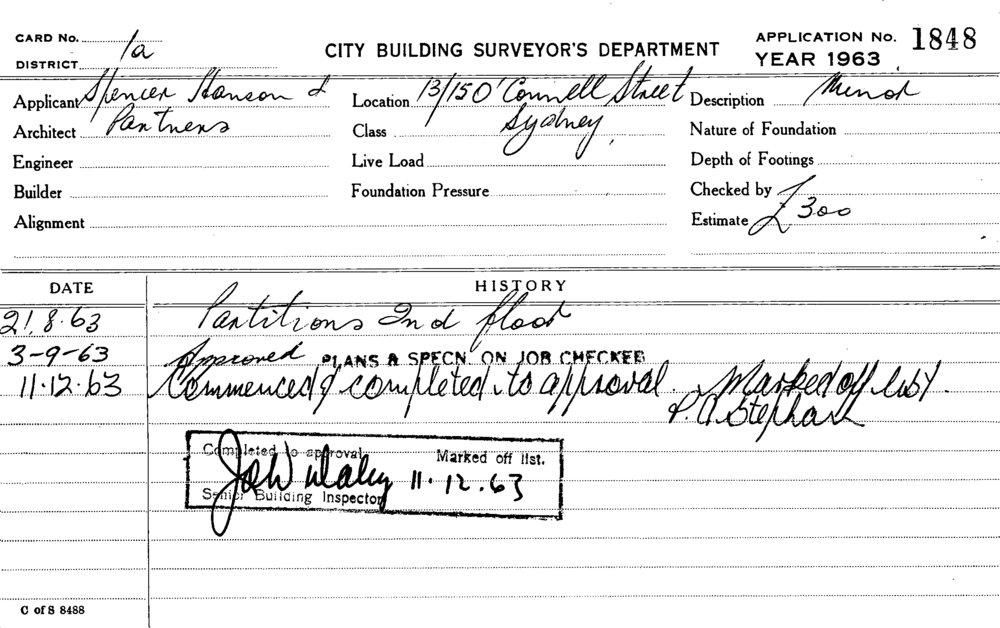 CARD No.
DISTRICT 1a
CITY BUILDING SURVEYOR'S DEPARTMENT
APPLICATION No. 1848
YEAR 1963
Applicant Spencer Hanson &
Architect Partners
Engineer
Builder
Alignment
Location 13/15 O'Connell Street
Class Sydney,
Live Load
Foundation Pressure
Description Minor
Nature of Foundation
Depth of Footings
Checked by
Estimate £300
DATE HISTORY
21.8.63 Partitions 2nd floor
3-9-63 Approved PLANS & SPECN. ON JOB CHECKED
11.12.63 Commenced & completed to approval. Marked off list.
Completed to approval Marked off list.
11.12.63
Senior Building Inspector
C of S 8488